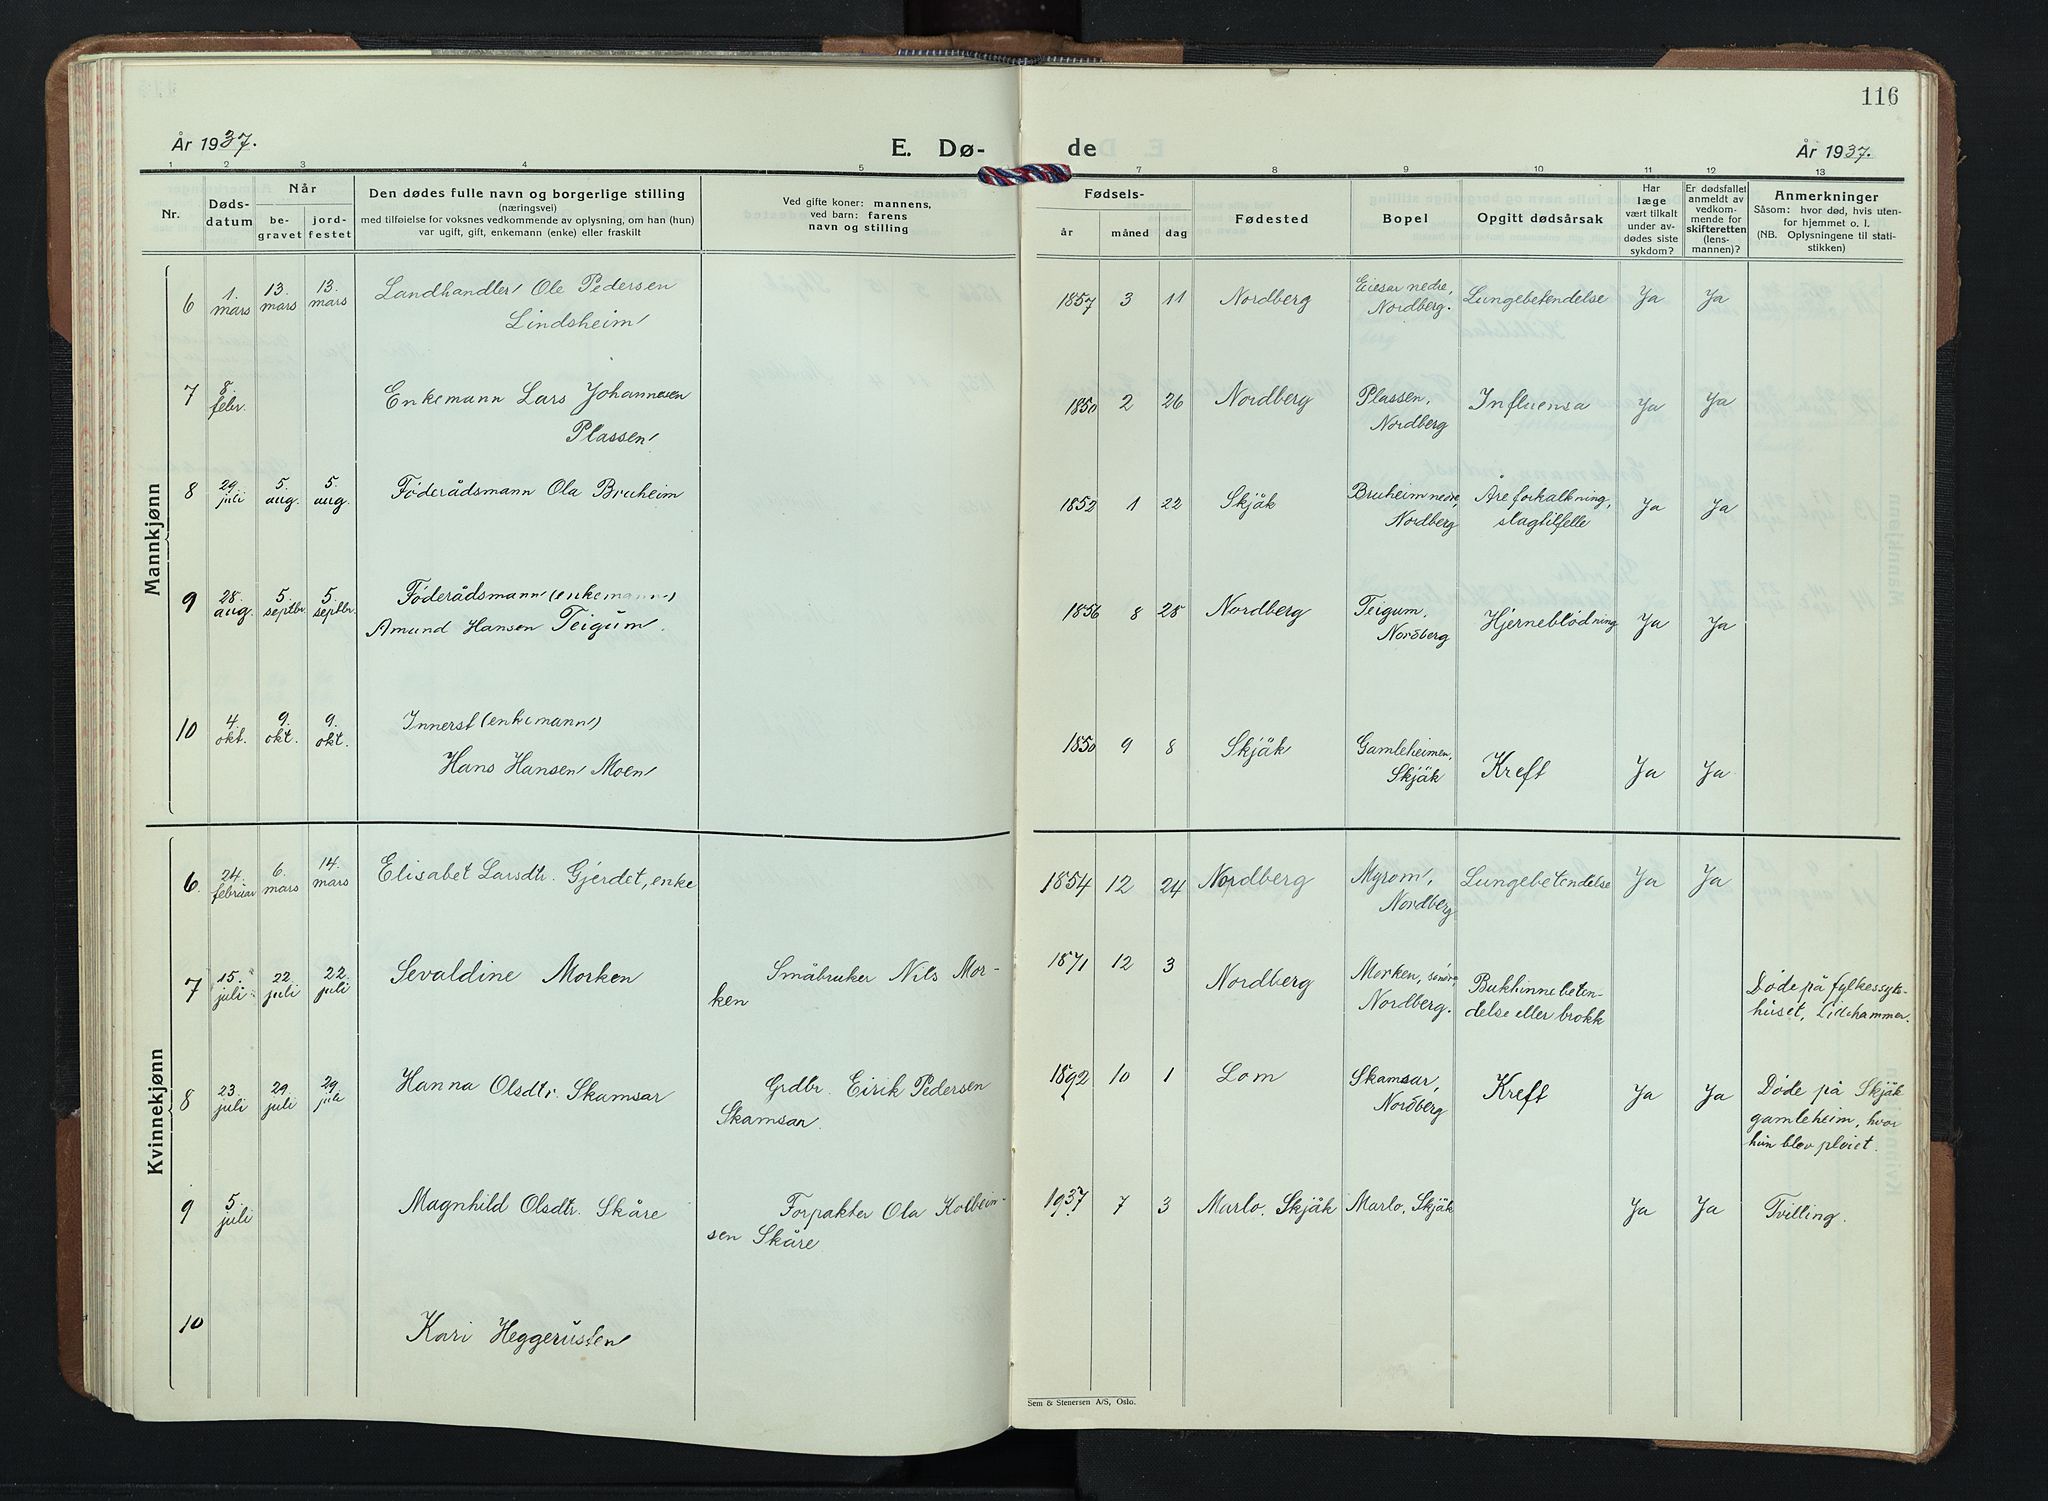 116
År 1937.
E. Dø-
de
År 1937.
1 2 3 4 5 7 8 9 10 11 12 13
Nr.
Døds-
datum
Når
be-
gravet
jord-
festet
Den dødes fulle navn og borgerlige stilling
(næringsvei)
med tilføielse for voksnes vedkommende av oplysning, om han (hun)
var ugift, gift, enkemann (enke) eller fraskilt
Ved gifte koner: mannens,
ved barn: farens
navn og stilling
Fødsels-
år
måned
dag
Fødested
Bopel
Opgitt dødsårsak
Har
læge
vært tilkalt
under av-
dødes siste
sykdom?
Er dødsfallet
anmeldt av
vedkom-
mende for
skifteretten
(lens-
mannen)?
Anmerkninger
Såsom: hvor død, hvis uten-
for hjemmet o. l.
(NB. Oplysningene til stati-
stikken)
Mannkjønn
6 1. mars 13. mars 13. mars Landhandler Ole Pedersen
Lindsheim
1857 3 11 Nordberg Eiesar nedre,
Nordberg. Lungebetendelse Ja Ja
7 8. febr. Enkemann Lars Johannesen
Plassen
1850 2 26 Nordberg Plassen,
Nordberg Influensa Ja Ja
8 29. juli 5. aug. 5. aug. Føderådsmann Ola Bruheim
1852 1 22 Skjåk Bruheim nedre,
Nordberg Åreforkalkning,
slagtilfelle Ja Ja
9 28. aug. 5. septbr. 5. septbr. Føderådsmann (enkemann)
Amund Hansen Teigum.
1856 8 28 Nordberg Teigum,
Nordberg Hjerneblødning Ja Ja
10 4. okt. 9. okt. 9. okt. Innerst (enkemann)
Hans Hansen Moen
1850 9 8 Skjåk Gamleheimen,
Skjåk Kreft Ja Ja
Kvinnekjønn
6. 24. februar 6. mars 14. mars Elisabet Larsdtr. Gjerdet, enke
1854 12 24 Nordberg Myrom,
Nordberg Lungebetendelse Ja Ja
7 15. juli 22. juli 22. juli Sevaldine Morken Småbruker Nils Mor-
ken
1871 12 3 Nordberg Morken, søndre,
Nordberg. Bukhinnebeten-
delse eller brokk Døde på fylkessyke-
huset, Lillehammer.
8 23. juli 29. juli 29. juli Hanna Olsdtr. Skamsar Grdbr. Eirik Pedersen
Skamsar.
1892 10 1 Lom Skamsar,
Nordberg Kreft Ja Ja Døde på Skjåk
gamleheim, hvor
hun blev pleiet.
9 5. juli Magnhild Olsdtr. Skåre Forpakter Ola Kolbein-
sen Skåre
1937 7 3 Marlo, Skjåk Marlo, Skjåk Ja Ja Tvilling.
10 Kari Heggerusten
Sem & Stenersen A/S, Oslo.